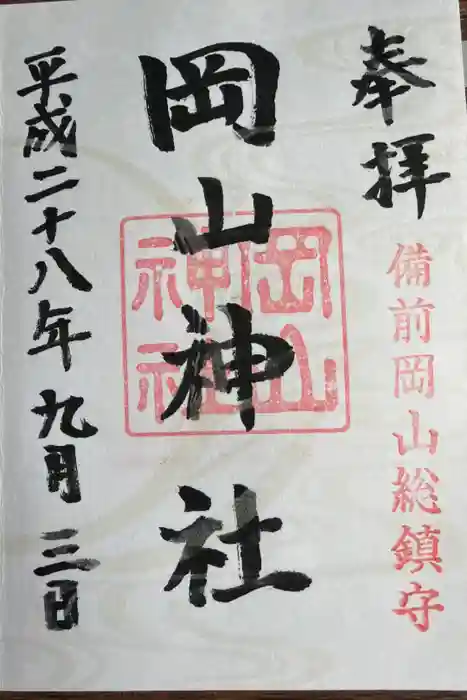 奉拝
備前岡山総鎮守
岡山神社
岡山
神社
平成二十八年九月三日